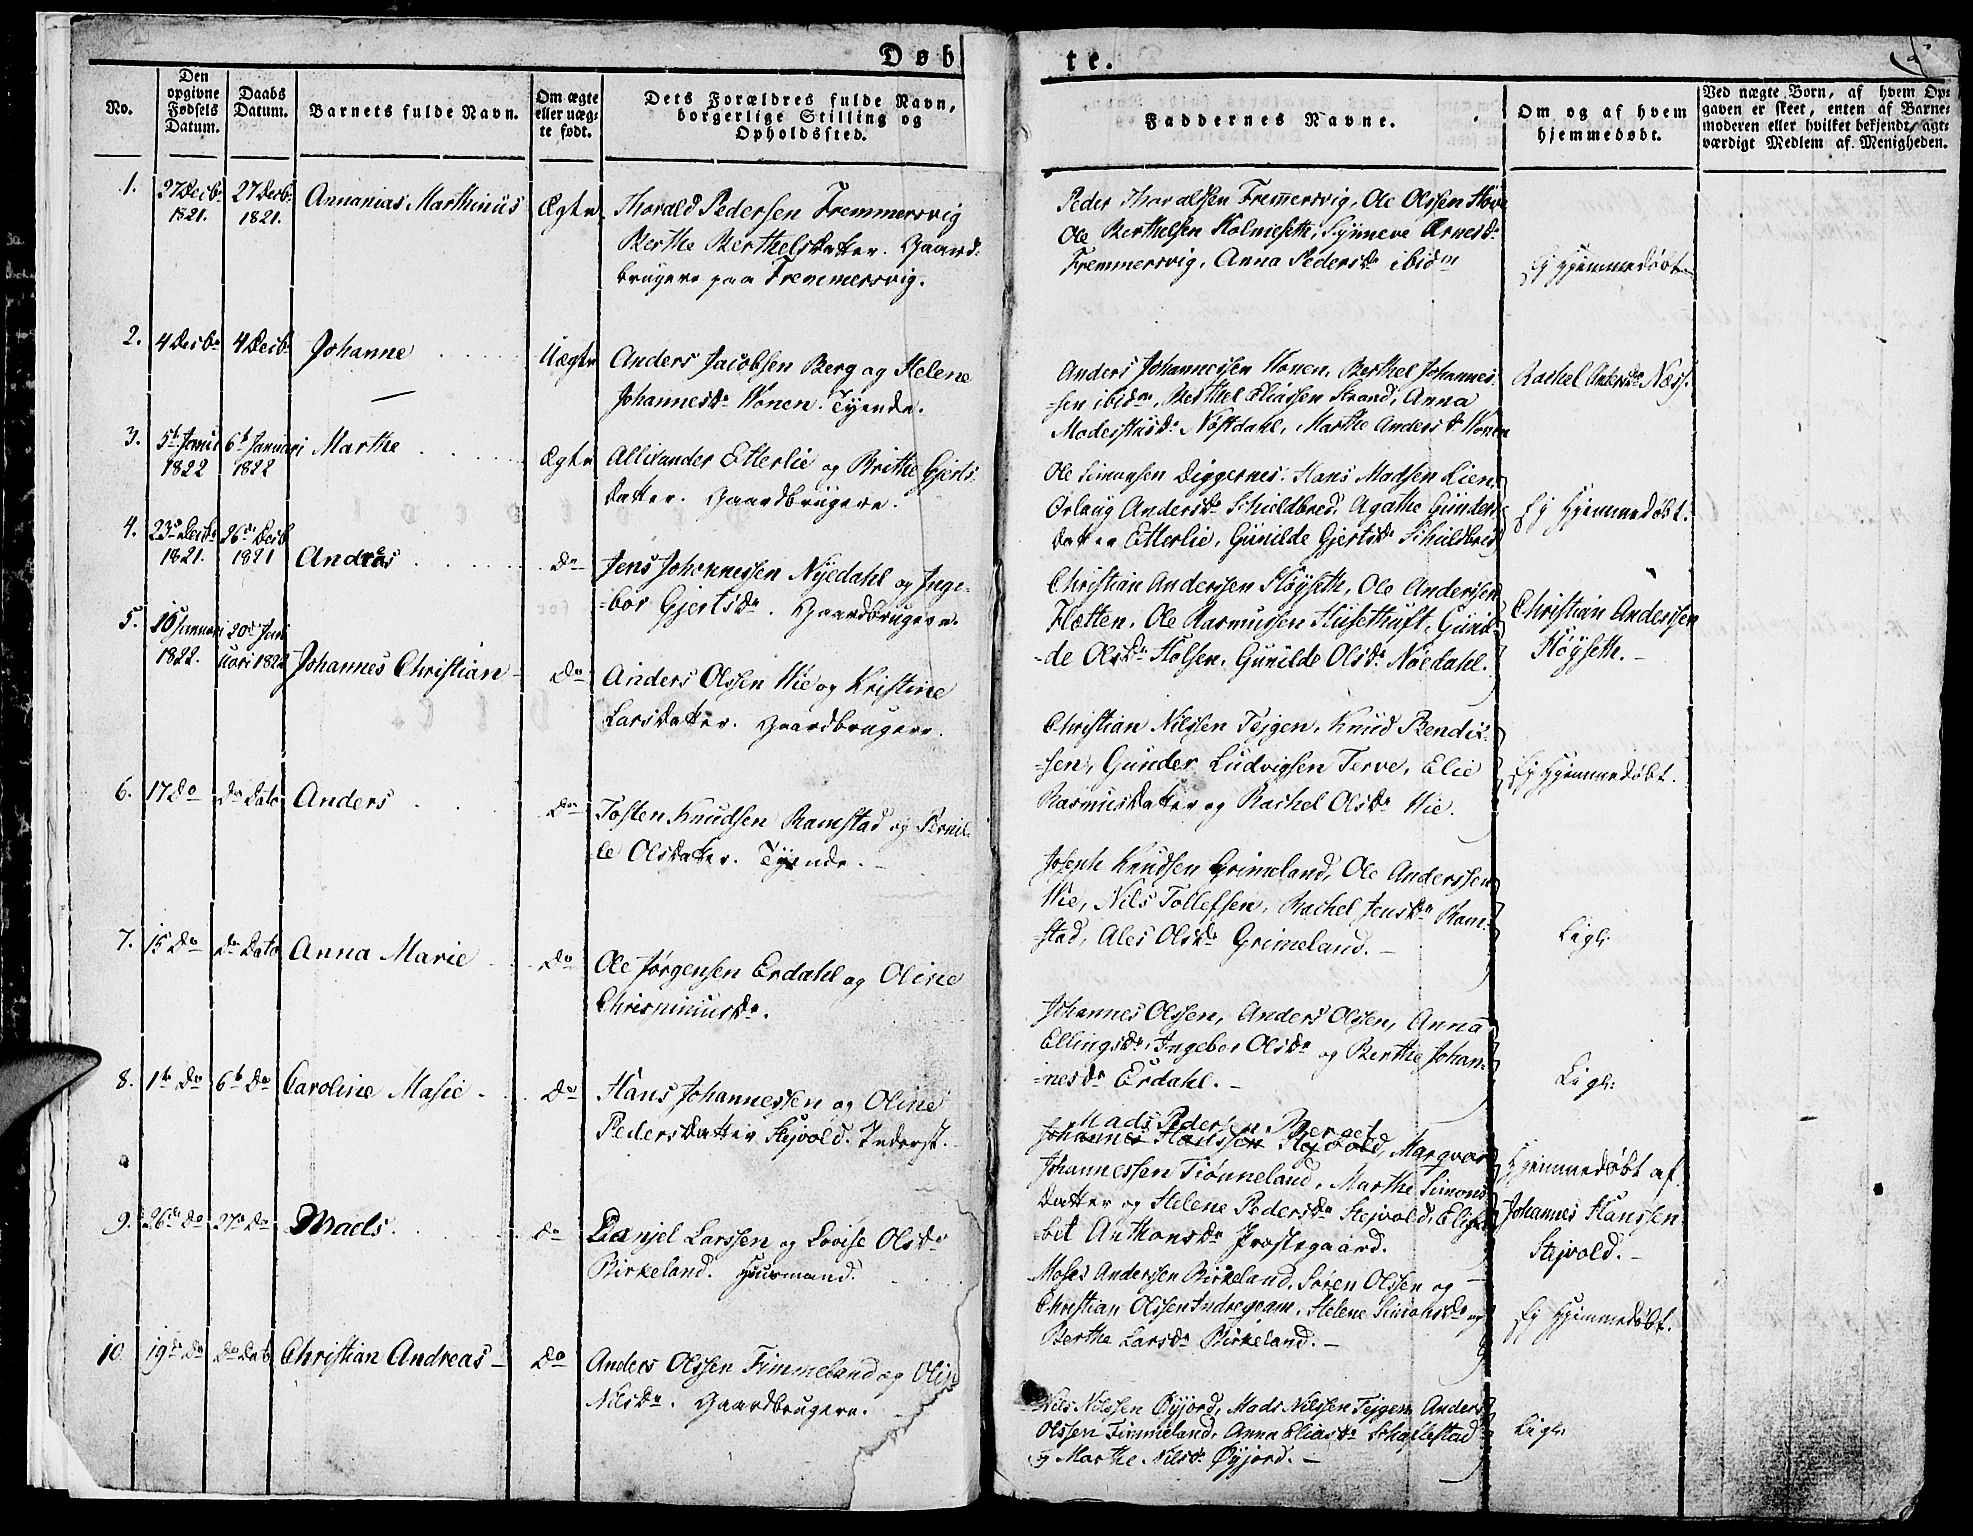 Døbte.
No.
Den opgivne Fødsels Datum.
Daabs Datum.
Barnets fulde Navn.
Om ægte eller uægte født.
Dets Forældres fulde Navn, borgerlige Stilling og Opholdssted.
Faddernes Navne.
Om og af hvem hjemmedøbt.
Ved uægte Born, af hvem Opgaven er skeet, enten af Barnemoderen eller hvilket bekjendt, agtværdigt Medlem af Menigheden.
1.
27 Decb. 1821.
27 Decb. 1821.
Annanias Marthinus
Ægte
Thorald Pedersen Fremmersvig
Berthe Berthelsdatter. Gaard-
brugere paa Fremmersvig.
Peder Thoraldsen Fremersvig, Ole Olssen Hove
Ole Berthelsen Holmeseth, Synneve Arnesdr
Fremmersvig, Anna Pedersdr ibidm
Ej Hjemmedøbt
2.
4 Decbr
4 Decb
Johanne
Uægte
Anders Jacobsen Berg og Helene
Johannesdr Wonen. Tyende.
Anders Johannessen Wonen, Berthel Johannes-
-sen ibidm, Berthel Eliassen Strand, Anna
Modestusdr Nøstdahl, Marthe Andersdr Wonen
Rachel Andersdr Næss.
3.
5t Januar 1822
6t Januari 1822
Marthe
Ægte
Allexander Etterlie og Brithe Gjerts-
datter. Gaardbrugere.
Ole Simonsen Diggernes. Hans Madsen Lien
Orlaug Andersdr Schieldbred, Agathe Gunders-
datter Etterlie, Gunilde Gjertsdr Schieldbred
Ej Hjemmedøbt.
4.
23de Decbr 1821.
26de Decb 1821
Andreas
Do
Jens Johannessen Nyedahl og Inge-
-bor Gjertsdr. Gaardbrugere.
Christian Anderssen Høyseth, Ole Anderssen
Flætten, Ole Rasmussen Husethuft, Gunil-
-de Olsdr Holsen, Gunilde Olsdr Nøedahl.
Christian Anderssen
Høyseth. -
5.
15 Januari 1822.
20de Januari 1822
Johannes Christian
Do
Anders Olssen Wie og Kristine
Larsdatter. Gaardbrugere.
Christian Nilssen Tejgen, Knud Bendix-
-sen, Gunder Ludvigsen Terve, Elie
Rasmusdatter og Rachel Olsdr Wie.
Ej Hjemmedøbt.
6.
17 Do
Do Dato
Anders
Do
Tosten Knudsen Ramstad og Pernil-
le Olsdatter. Tyende. -
Joseph Knudsen Grimeland, Ole Anderssen
Wie, Nils Tollefsen, Rachel Jensdr Ram-
stad, Ales Olsdr Grimeland. -
Ligl:
7.
15 Do
Do Dato
Anna Marie
Do
Ole Jørgensen Erdahl og Oline
Chrisminusdr.
Johannes Olssen, Anders Olssen, Anna
Ellingsdr, Ingebor Olsdr og Berthe Johan-
-nesdr Erdahl. -
Ligl:
8.
1te Do
6te Do
Caroline Masie
Do
Hans Johannessen og Oline
Pedersdatter Stejvold. Inderst.
Mads Pedersen Berget
Johannes Hanssen Stejvold, Marqvor
Johannessen Tiønneland, Marthe Simons-
datter og Helene Pedersdr Stejvold, Elisa-
-bet Anthonsdr Prostegaard.
Hjemmedøbt af
Johannes Hanssen
Stejvold. -
9.
26de Do
27de Do
Mads.
Do
Danjel Larssen og Lovise Olsdr
Birkeland. Huusmand.
Moses Anderssen Birkeland, Søren Olssen og
Christian Olssen Indregaam, Helene Simonsdr og
Berthe Larsdr Birkeland. -
Ej Hjemmedøbt.
10
19de Do
Do Dato
Christian Andreas
Do
Anders Olssen Timmeland og Olin
Nilsdr. Gaardbrugere.
Nils Nilssen Øyjord, Mads Nilssen Tejgen, Anders
Olssen Timmeland, Anna Eliasdr Schaflestad
og Marthe Nilsdr Øyjord. -
Ligl: